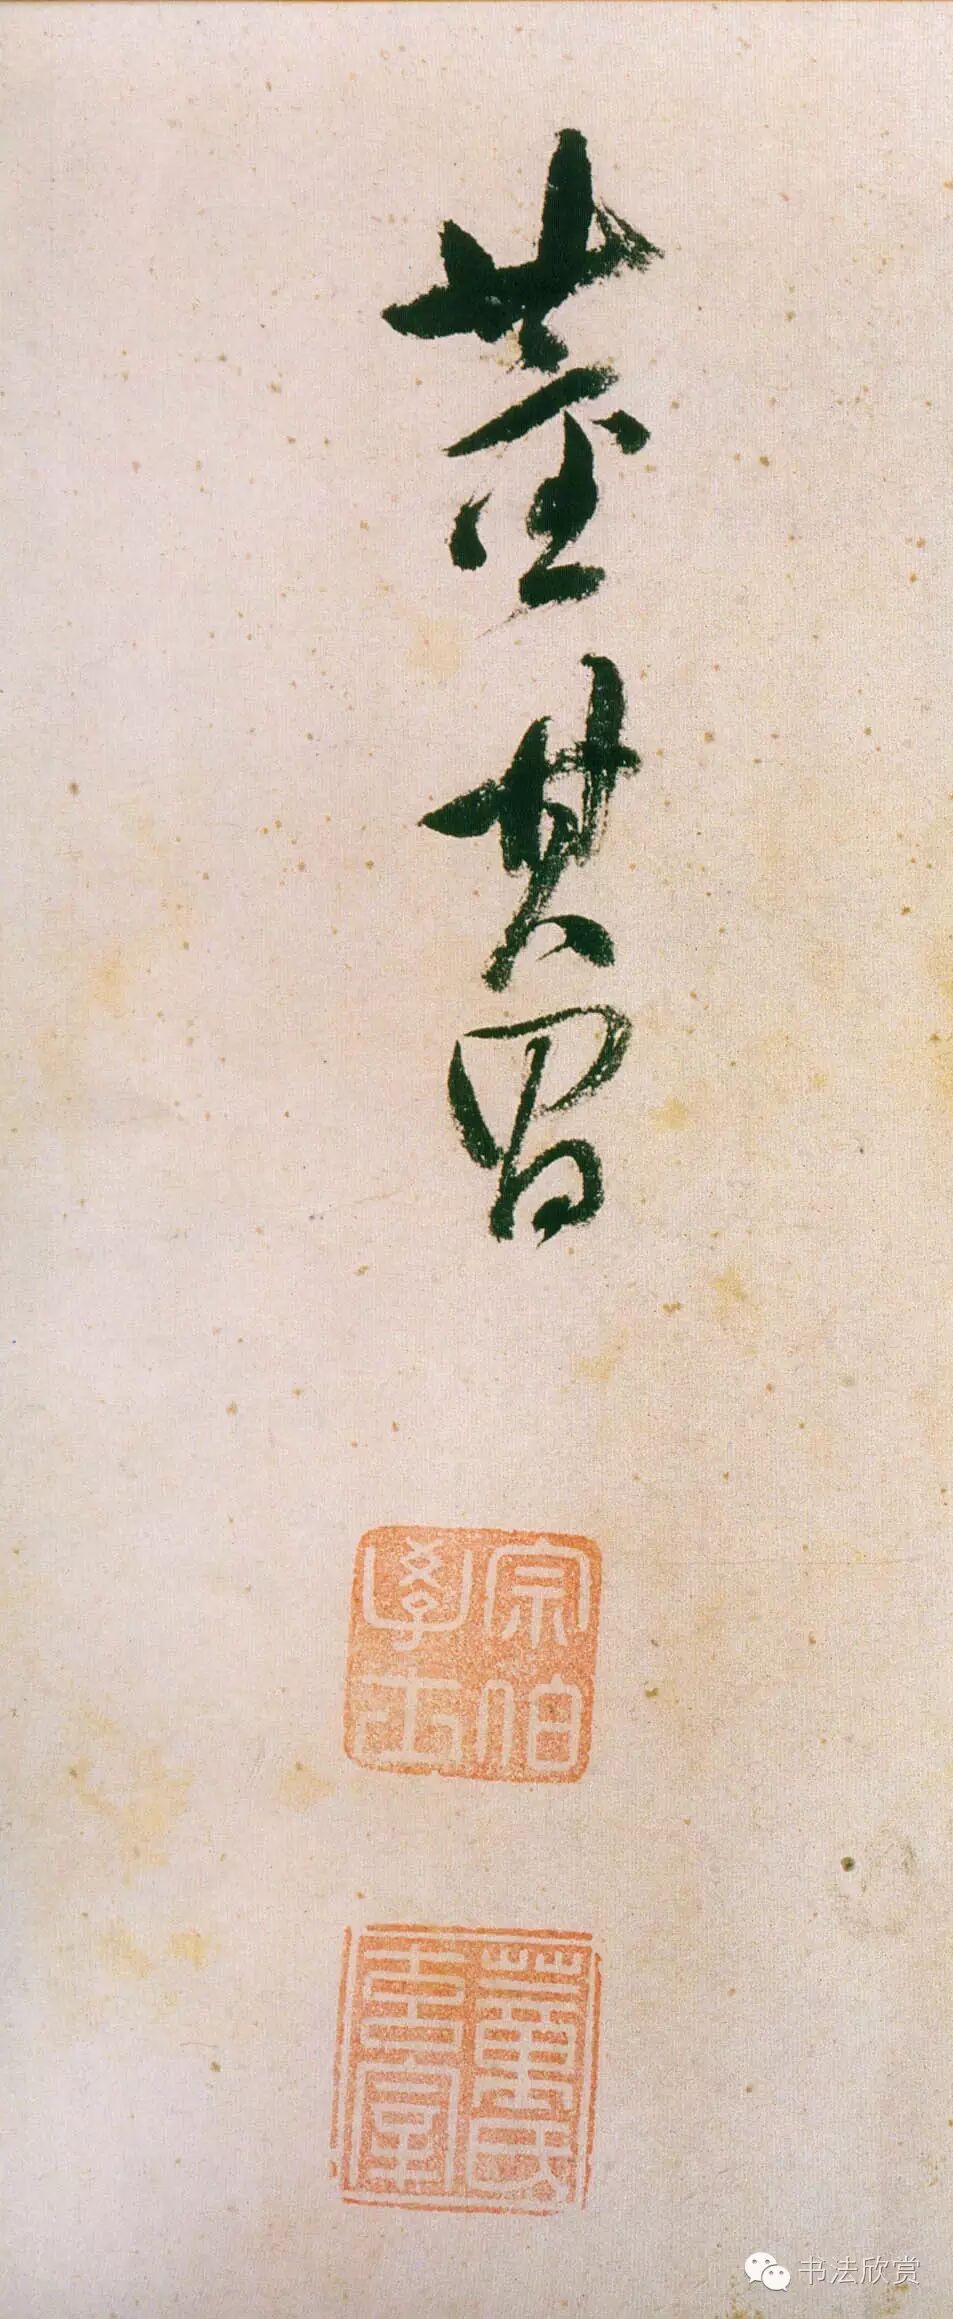 董其昌
宗伯學士
董氏玄宰
书法欣赏